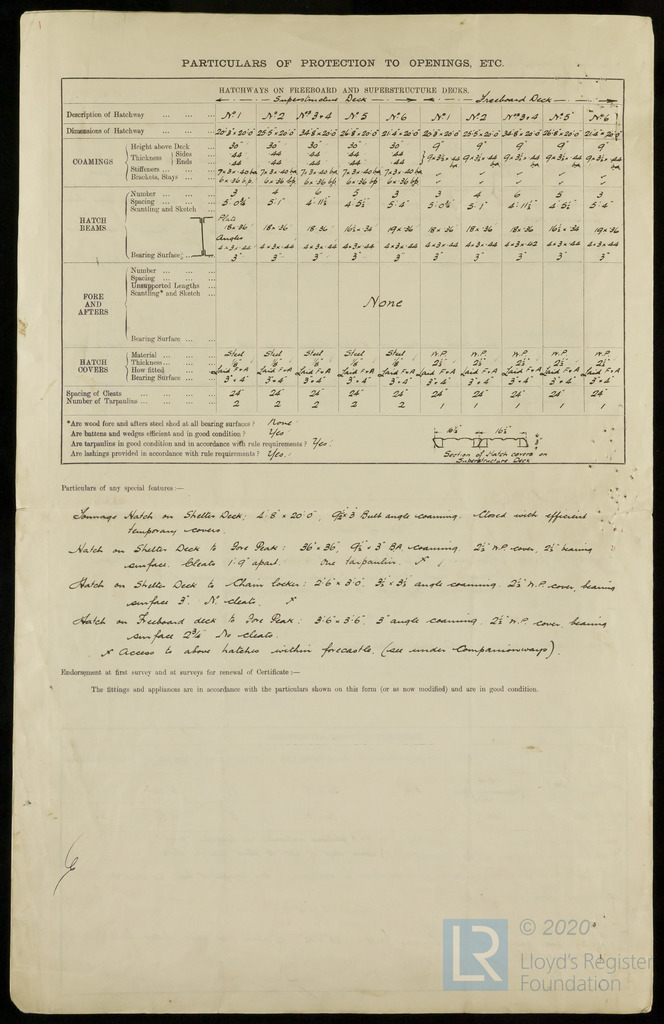 PARTICULARS OF PROTECTION TO OPENINGS, ETC.
HATCHWAYS ON FREEBOARD AND SUPERSTRUCTURE DECKS.
Superstructure Deck Freeboard Deck
Description of Hatchway Nº1 Nº2 Nºs 3+4 Nº5 Nº6 Nº1 Nº2 Nºs 3+4 Nº5 Nº6
Dimensions of Hatchway
COAMINGS
Height above Deck 30" 30" 30" 30" 30" 9" 9" 9" 9" 9"
Thickness Sides .44 .44 .44 .44 .44
Ends .44 .44 .44 .44 .44
Stiffeners
Brackets, Stays
HATCH BEAMS
Number 3 4 6 5 3 3 4 6 5 3
Spacing
Scantling and Sketch
Plate
18 × .36 18 × .36 18 × .36 16½ × .34 19 × .36 18 × .36 18 × .36 18 × .36 16½ × .34 19 × .36
Angles
Bearing Surface 3" 3" 3" 3" 3" 3" 3" 3" 3" 3"
FORE AND AFTERS
Number
Spacing
Unsupported Lengths
Scantling* and Sketch
None
Bearing Surface
HATCH COVERS
Material Steel Steel Steel Steel Steel W.P. W.P. W.P. W.P. W.P.
Thickness 2½" 2½" 2½" 2½" 2½"
How fitted Laid F+A Laid F+A Laid F+A Laid F+A Laid F+A Laid F+A Laid F+A Laid F+A Laid F+A Laid F+A
Bearing Surface
Spacing of Cleats 24" 24" 24" 24" 24" 24" 24" 24" 24" 24"
Number of Tarpaulins 2 2 2 2 2 1 1 1 1 1
*Are wood fore and afters steel shod at all bearing surfaces? None
Are battens and wedges efficient and in good condition? Yes
Are tarpaulins in good condition and in accordance with rule requirements? Yes.
Are lashings provided in accordance with rule requirements? Yes.
16½" 16½"
Section of Hatch covers on
Superstructure Deck
Particulars of any special features:—
Tonnage Hatch on Shelter Deck; 4'.8" × 20'.0", 9½" × 3" Bulb angle coaming. Closed with efficient
temporary covers.
Hatch on Shelter Deck to Fore Peak: 36" × 36", 9½" × 3" BA. coaming. 2½" W.P. cover, 2½" bearing
surface. Cleats 1'.9" apart. One tarpaulin. x
Hatch on Shelter Deck to Chain locker: 2'.6" × 3'.0", 3½" × 3½" angle coaming. 2½" W.P. cover, bearing
surface 3". No cleats. x
Hatch on Freeboard deck to Fore Peak: 3'.6" × 3'.6", 3" angle coaming. 2½" W.P. cover, bearing
surface 2¾" No cleats.
x Access to above hatches within forecastle. (see under Companionways).
Endorsement at first survey and at surveys for renewal of Certificate:—
The fittings and appliances are in accordance with the particulars shown on this form (or as now modified) and are in good condition.
LR © 2020
Lloyd's Register
Foundation